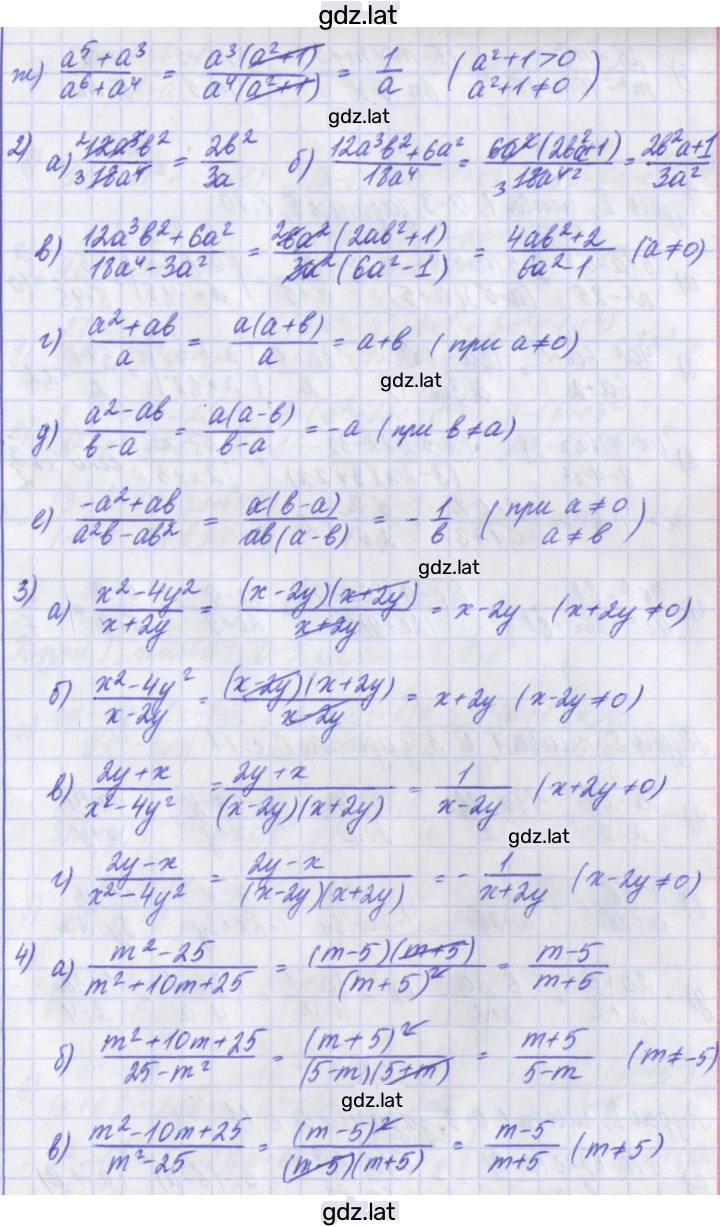 gdz.lat
ж) (a⁵+a³)/(a⁶+a⁴) = (a³(a²+1))/(a⁴(a²+1)) = 1/a (a²+1>0 a²+1≠0)
gdz.lat
2) а) (12a³b²)/(18a⁴) = 2b²/3a б) (12a³b²+6a²)/(18a⁴) = (6a²(2b²a+1))/(18a⁴) = (2b²a+1)/(3a²)
в) (12a³b²+6a²)/(18a⁴-3a²) = (6a²(2ab²+1))/(3a²(6a²-1)) = (4ab²+2)/(6a²-1) (a≠0)
г) (a²+ab)/a = (a(a+b))/a = a+b (при a≠0)
gdz.lat
д) (a²-ab)/(b-a) = (a(a-b))/(b-a) = -a (при b≠a)
е) (-a²+ab)/(a²b-ab²) = (a(b-a))/(ab(a-b)) = -1/b (при a≠0 a≠b)
gdz.lat
3) а) (x²-4y²)/(x+2y) = ((x-2y)(x+2y))/(x+2y) = x-2y (x+2y≠0)
б) (x²-4y²)/(x-2y) = ((x-2y)(x+2y))/(x-2y) = x+2y (x-2y≠0)
в) (2y+x)/(x²-4y²) = (2y+x)/((x-2y)(x+2y)) = 1/(x-2y) (x+2y≠0)
gdz.lat
г) (2y-x)/(x²-4y²) = (2y-x)/((x-2y)(x+2y)) = -1/(x+2y) (x-2y≠0)
4) а) (m²-25)/(m²+10m+25) = ((m-5)(m+5))/((m+5)²) = (m-5)/(m+5)
б) (m²+10m+25)/(25-m²) = ((m+5)²)/((5-m)(5+m)) = (m+5)/(5-m) (m≠-5)
gdz.lat
в) (m²-10m+25)/(m²-25) = ((m-5)²)/((m-5)(m+5)) = (m-5)/(m+5) (m≠5)
gdz.lat